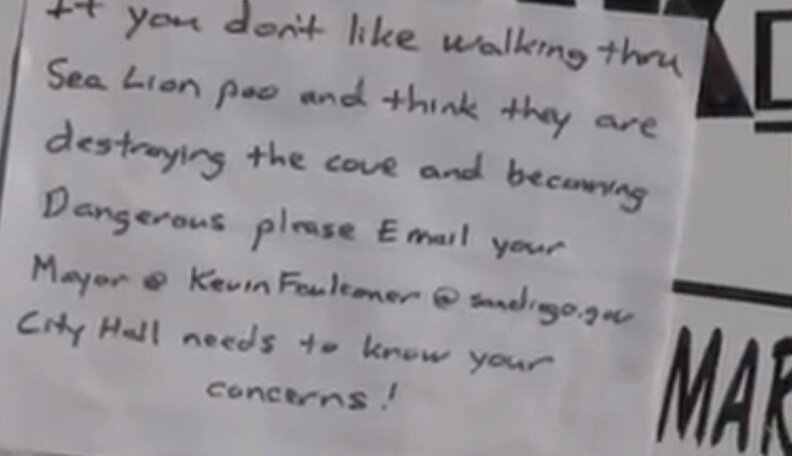 If you don't like walking thru
Sea Lion poo and think they are
destroying the cove and becoming
Dangerous please Email your
Mayor @ KevinFaulconer @ sandiego.gov
City Hall needs to know your
concerns!
MAR